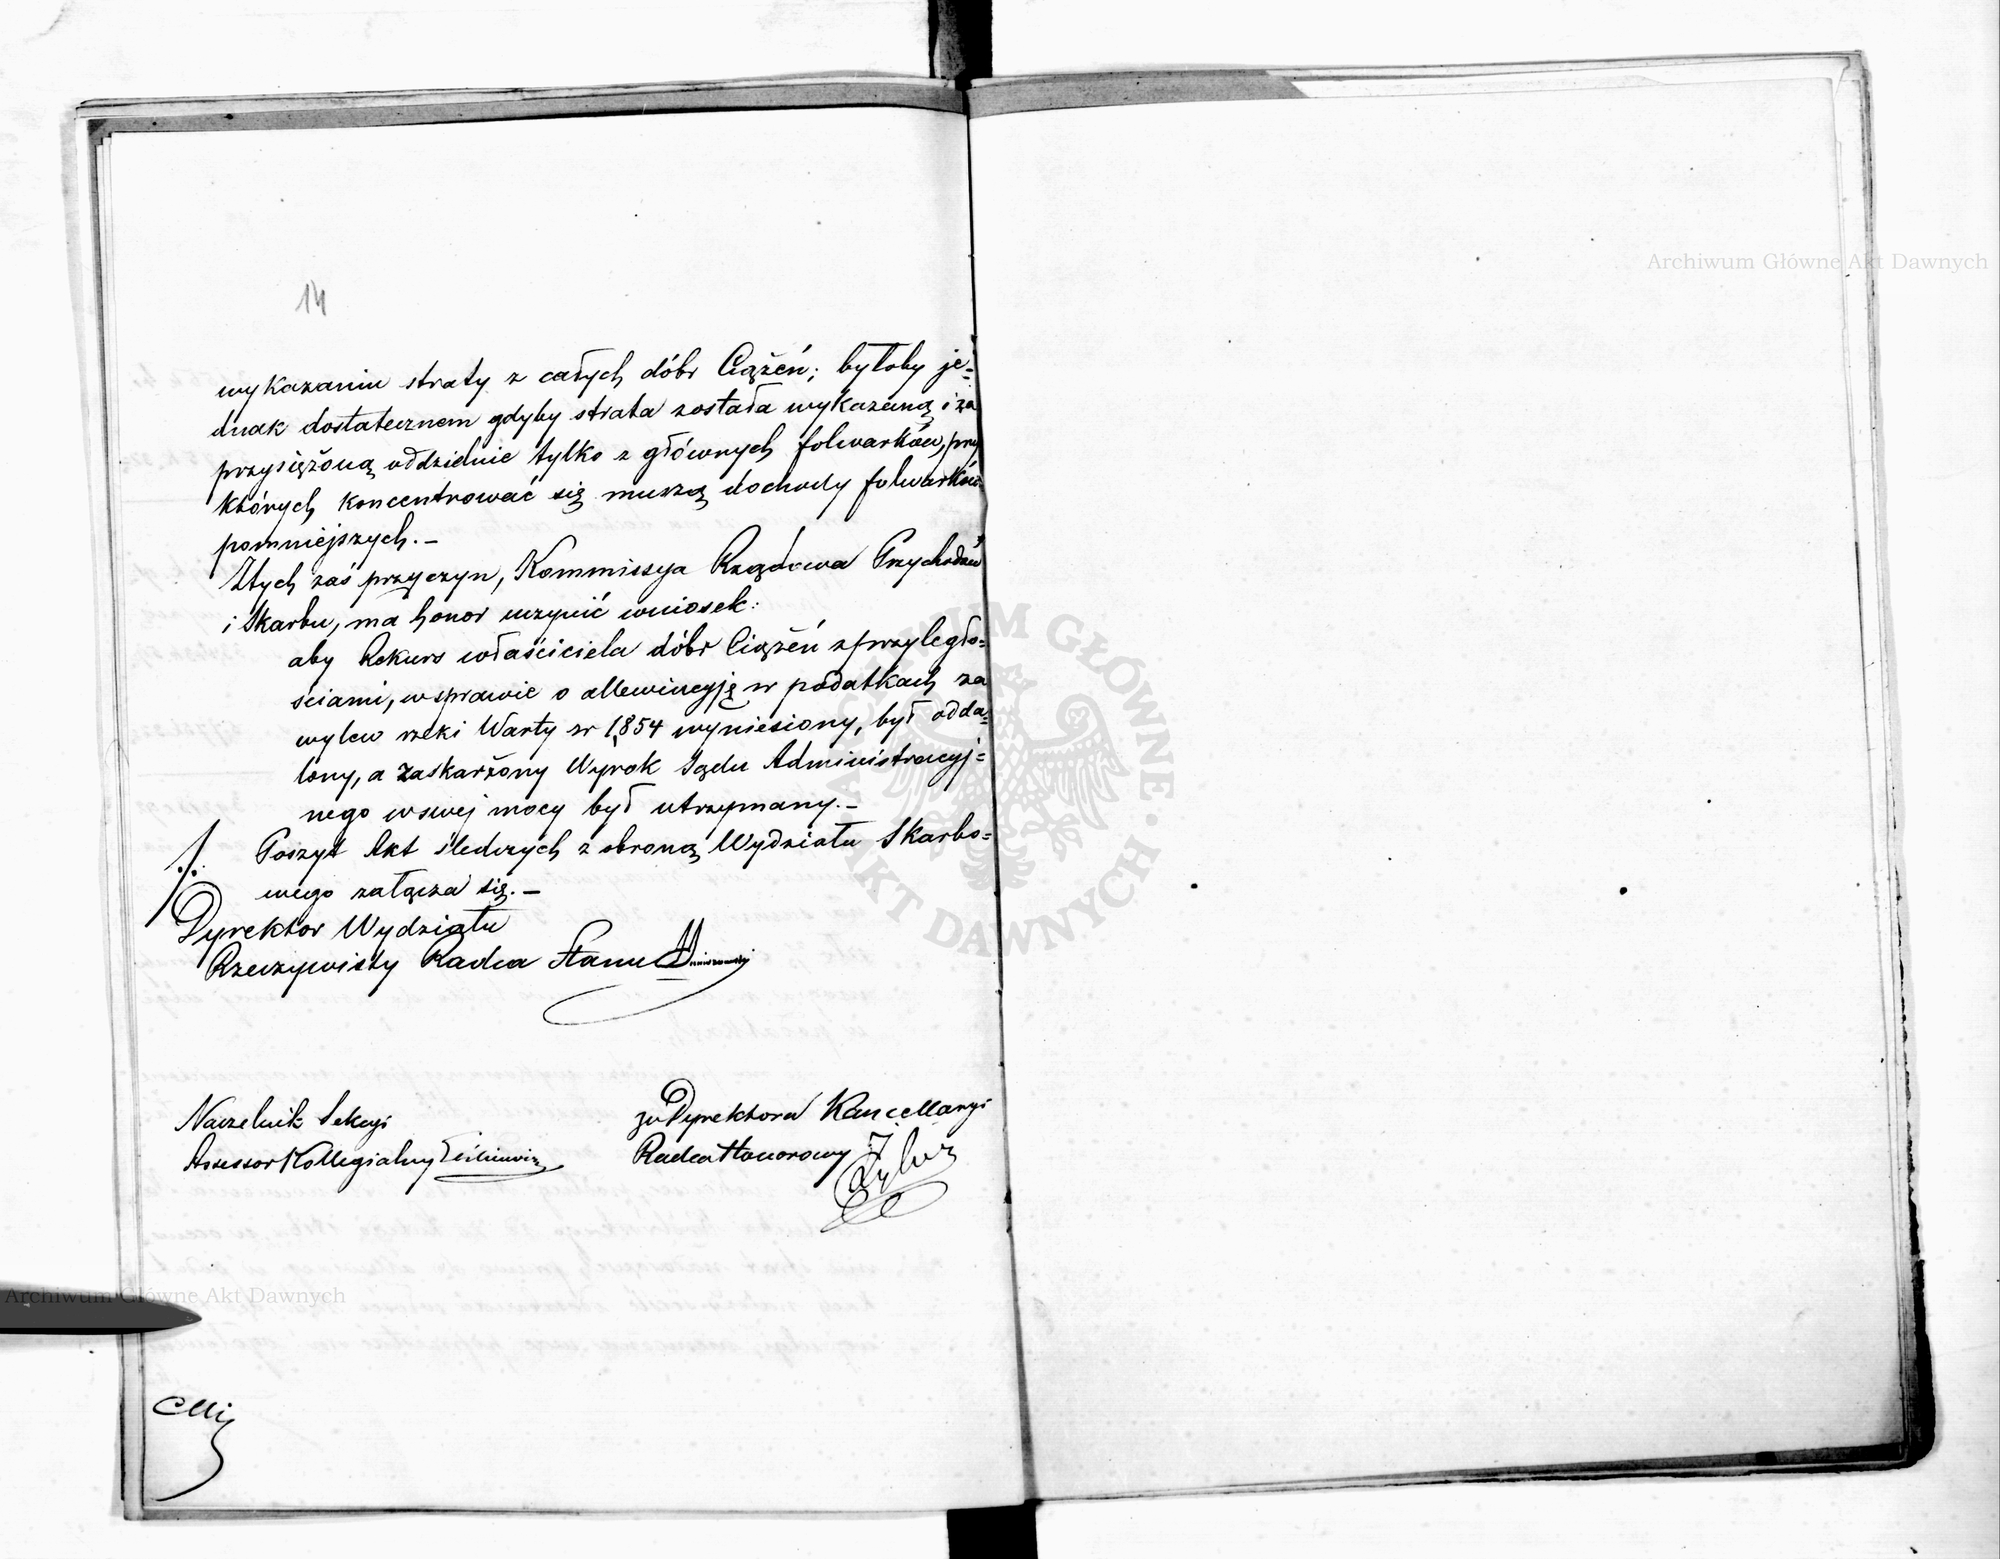 14
wykazaniu straty z całych dóbr Ciążeń; byłoby je-
dnak dostatecznem gdyby strata została wykazaną i za
przysiężoną oddzielnie tylko z głównych folwarków, przy
których koncentrować się muszą dochody folwarków
pomniejszych.-
Ztych zaś przyczyn, Kommissya Rządowa Przychodów
i Skarbu, ma honor uczynić wniosek:
aby Rekurs właściciela dóbr Ciążeń z przyległo-
ściami, w sprawie o allewiacyję w podatkach za
wylew rzeki Warty w 1854 wyniesiony, był odda-
lony, a zaskarżony Wyrok Sądu Administracyj-
nego w swej mocy był utrzymany.-
Poszyt Akt śledczych z obroną Wydziału Skarbo-
wego załącza się.-
Dyrektor Wydziału
Rzeczywisty Radca Stanu
Naczelnik Sekcyi
Assessor Kollegialny
za Dyrektora Kancellaryi
Radca Honorowy
Archiwum Główne Akt Dawnych
Archiwum Główne Akt Dawnych
ARCHIWUM GŁÓWNE AKT DAWNYCH